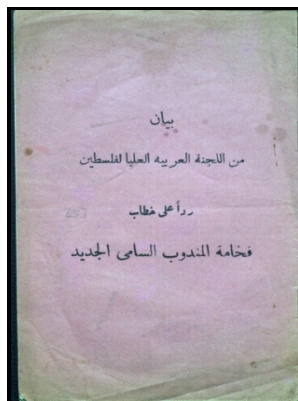 بيان
من اللجنة العربيه العليا لفلسطين
رداً على خطاب
فخامة المندوب السامى الجديد